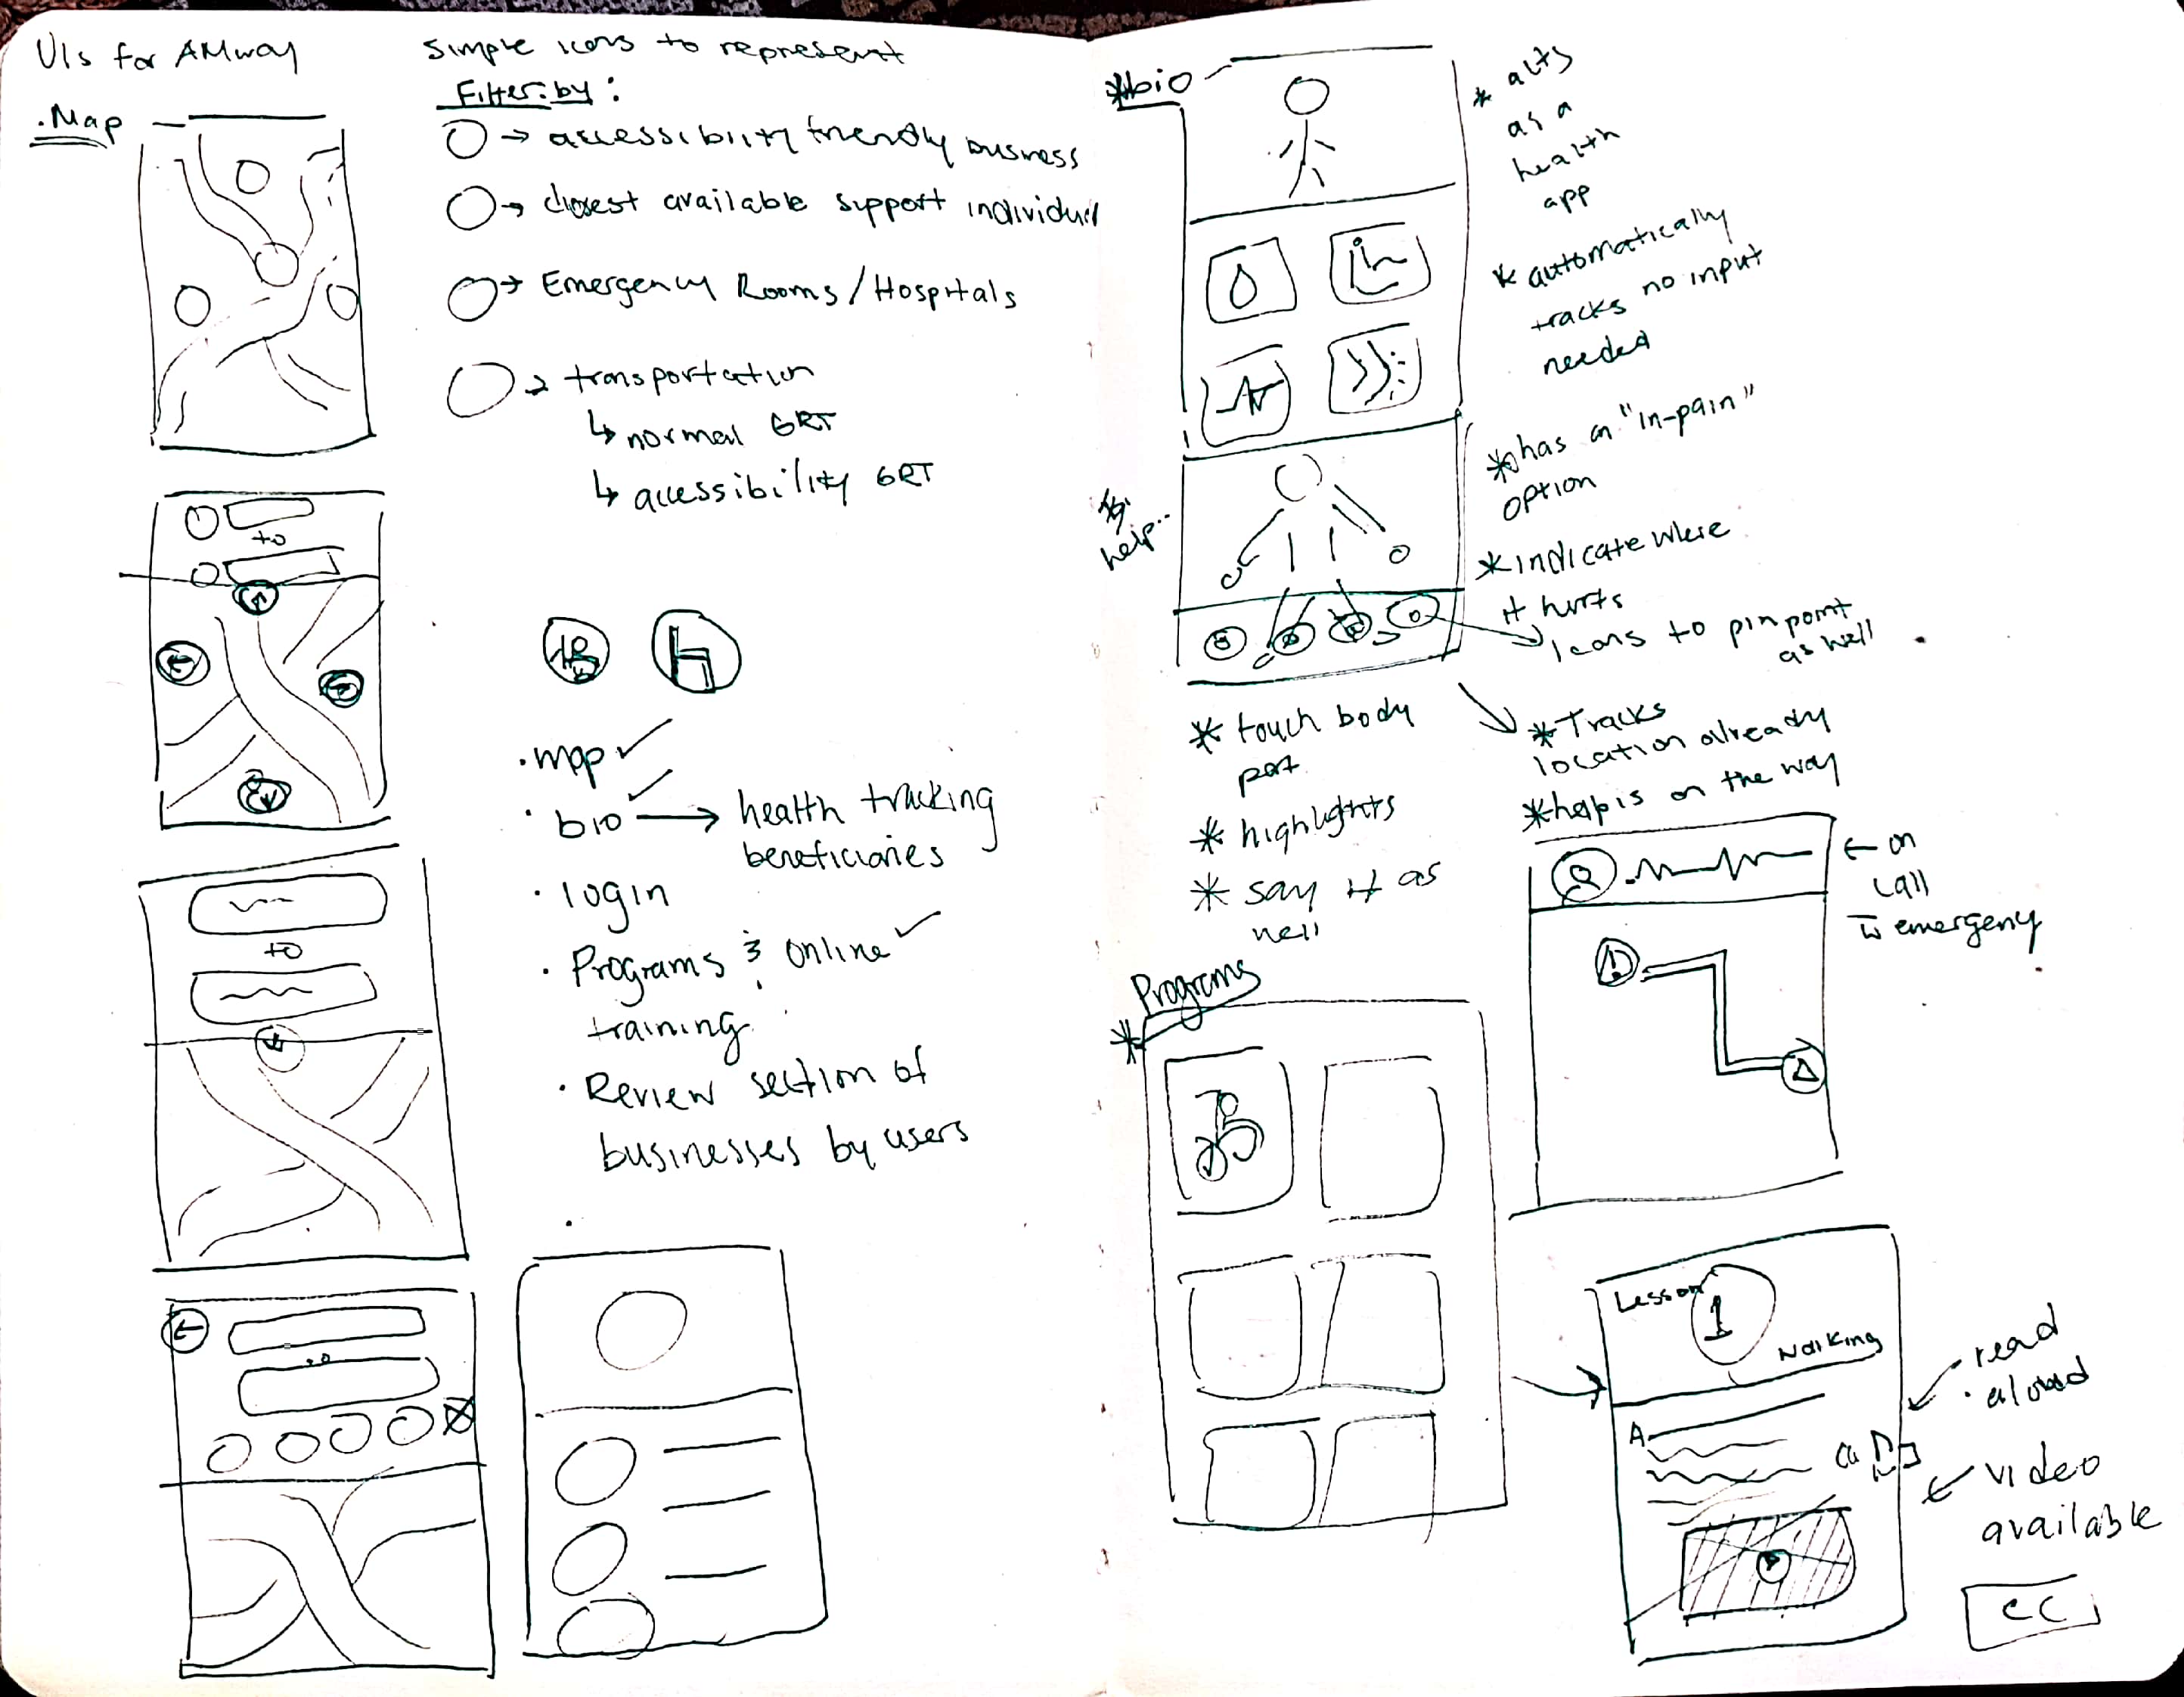 UIs for AMway
simple icons to represent
Filter by:
.Map
→ accessibility friendly business
→ closest available support individual
→ Emergency Rooms/Hospitals
→ transportation
↳ normal GRT
↳ accessibility GRT
to
· map ✓
· bio ✓ → health tracking
beneficiaries
· login
· Programs & online ✓
training
· Review section of
businesses by users
to
to
*bio
* acts
as a
health
app
* automatically
tracks no input
needed
* has an "in-pain"
option
help..
* indicate where
it hurts
Icons to pinpoint
as well
* touch body
part
* highlights
* say it as
well
* Tracks
location already
* help is on the way
← on
call
to emergency
* Programs
Lesson 1
Walking
A
read
aloud
video
available
CC